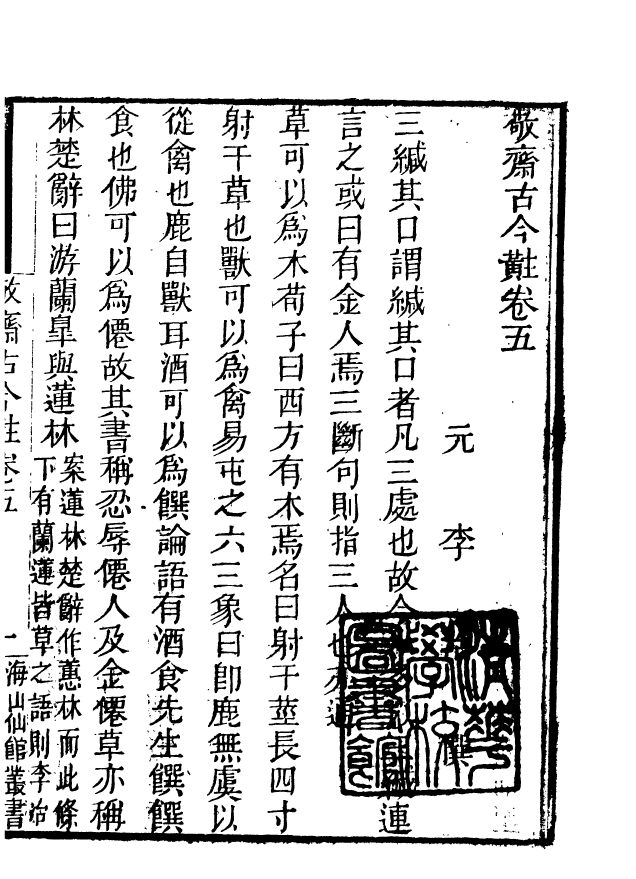 敬齋古今黈卷五
元 李 撰
三緘其口謂緘其口者凡三處也故今 連
言之或曰有金人焉三斷句則指三人也亦通
草可以為木荀子曰西方有木焉名曰射干莖長四寸
射干草也獸可以為禽易屯之六三象曰卽鹿無虞以
從禽也鹿自獸耳酒可以為饌論語有酒食先生饌饌
食也佛可以為僊故其書稱忍辱僊人及金僊草亦稱
林楚辭曰游蘭皐與蓮林案蓮林楚辭作蕙林而此條
下有蘭蓮皆草之語則李冶
敬齋古今黈卷五
一
海山仙館叢書
清華學校圖書館